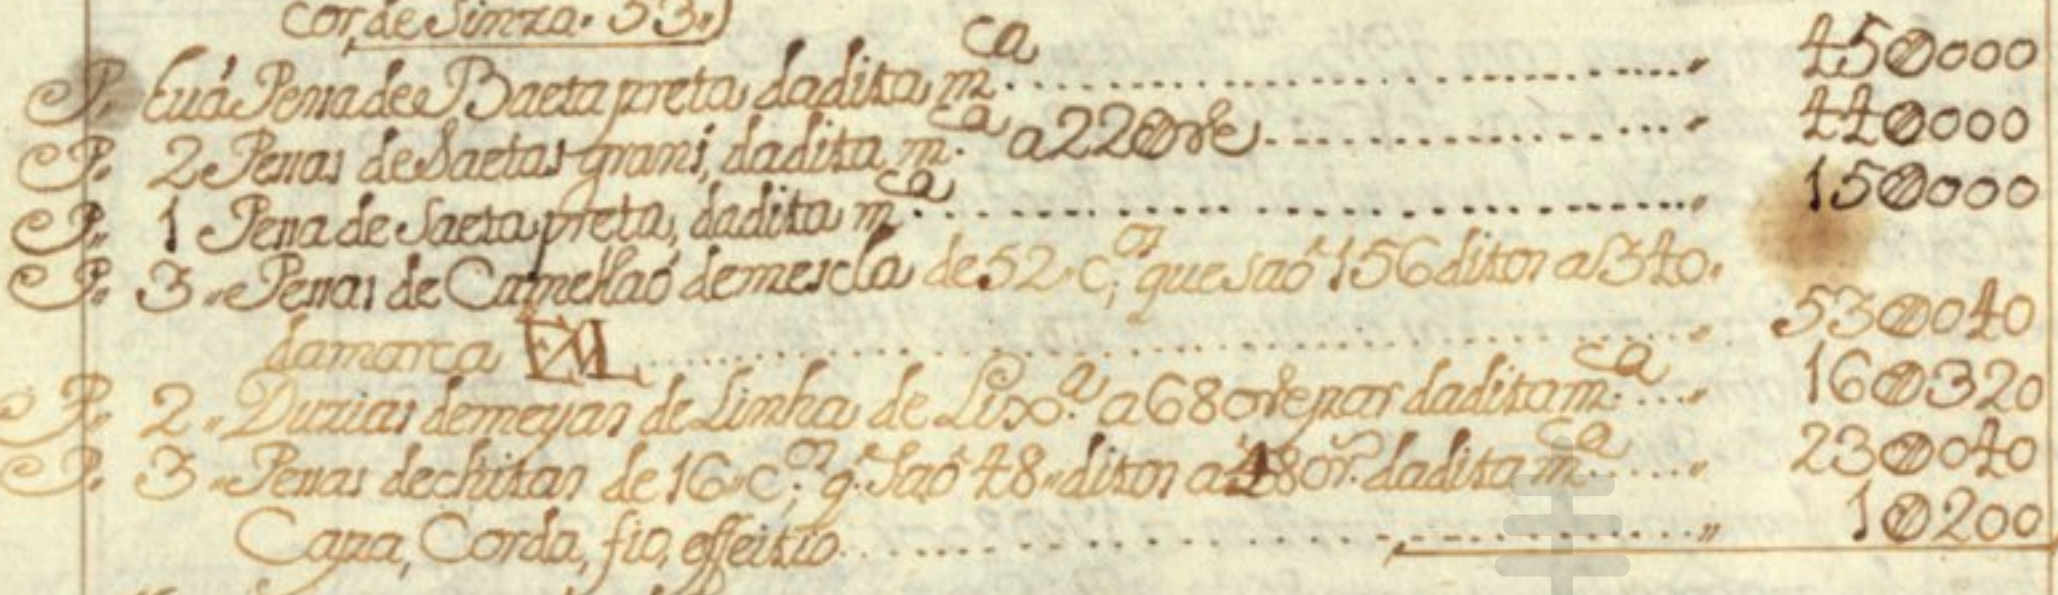 cor, de Sinza. 53,,)
P. huá Pessa de Baeta preta, da dita m.ca .......... ,, 45@000
P. 2 Pessas de Saetas grans, da dita m.ca a 22@rs .......... ,, 44@000
P. 1 Pessa de Saeta preta, da dita m.ca .......... ,, 15@000
P. 3 ,, Pessas de Camelhaó de mescla de 52 c,os que saó 156 ditos a 340.
da marca EXL .......... ,, 53@040
P. 2 ,, Duzias de meyas de Linha de Lixa.a a 680 rs par da dita m.ca .... ,, 16@320
P. 3 ,, Pessas de chitas de 16 c,os q. saó 48 ,, ditos a 480 rs. da dita m.ca ..... ,, 23@040
Capa, Corda, fio, effeitio .......... ,, 1@200